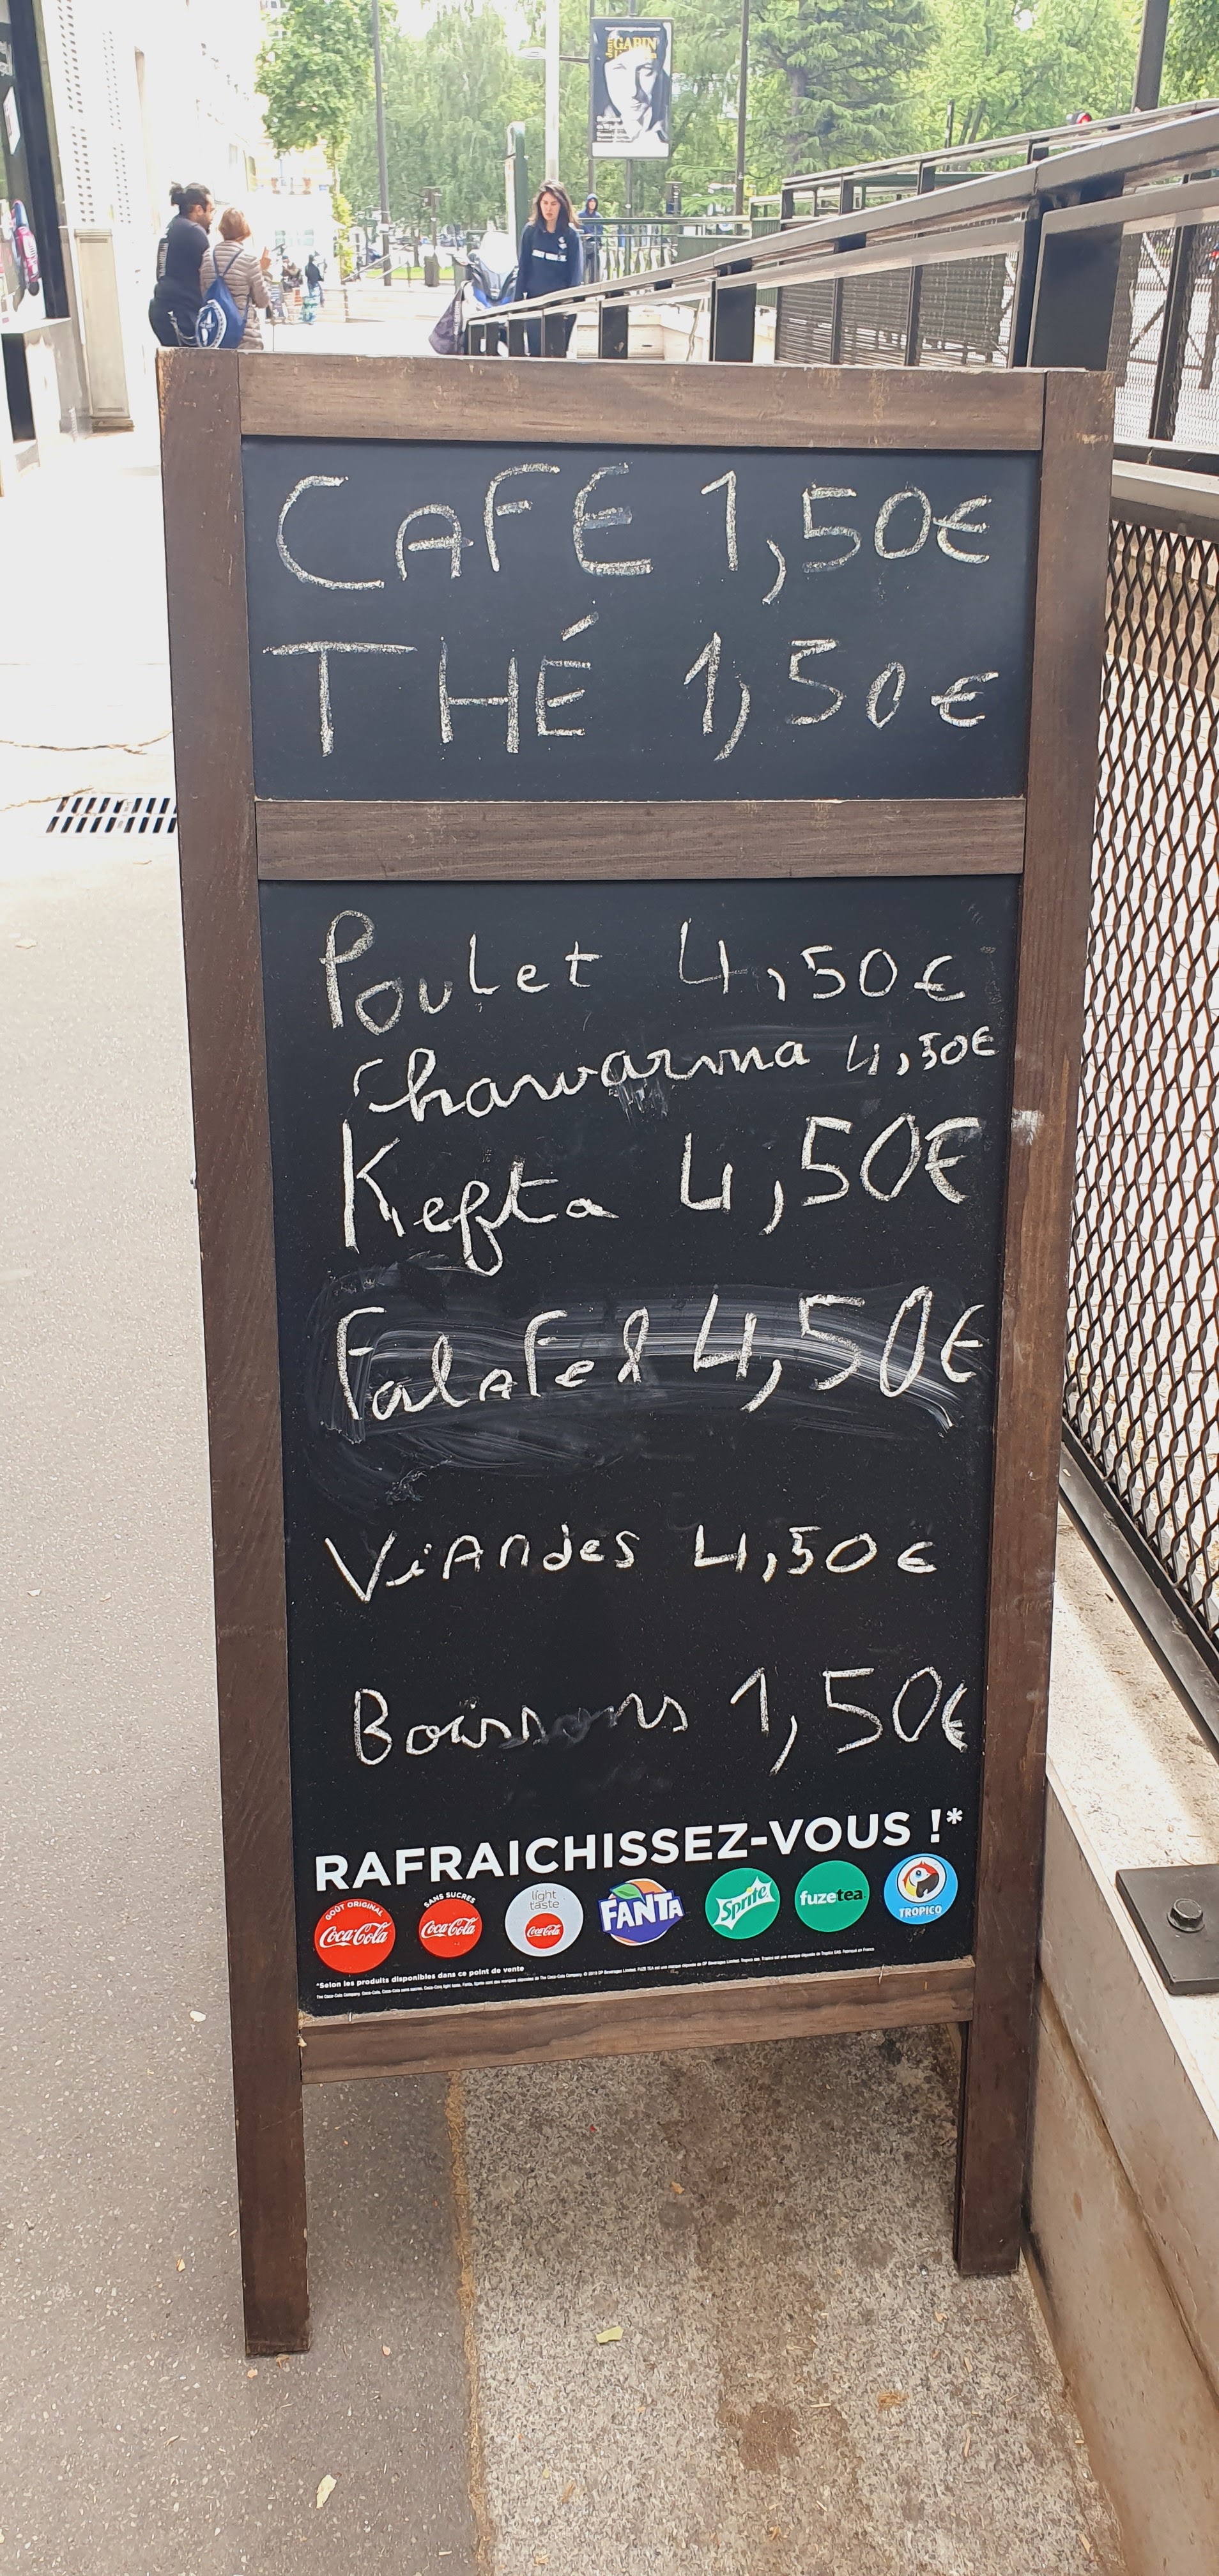 GABIN
CAFÉ 1,50€
THÉ 1,50€
Poulet 4,50€
Chawarma 4,50€
Kefta 4,50€
FalaFel 4,50€
ViAndes 4,50€
Boissons 1,50€
RAFRAICHISSEZ-VOUS !*
GOÛT ORIGINAL Coca-Cola
SANS SUCRES Coca-Cola
light taste Coca-Cola
FANTA
Sprite
fuzetea
TROPICO
*Selon les produits disponibles dans ce point de vente